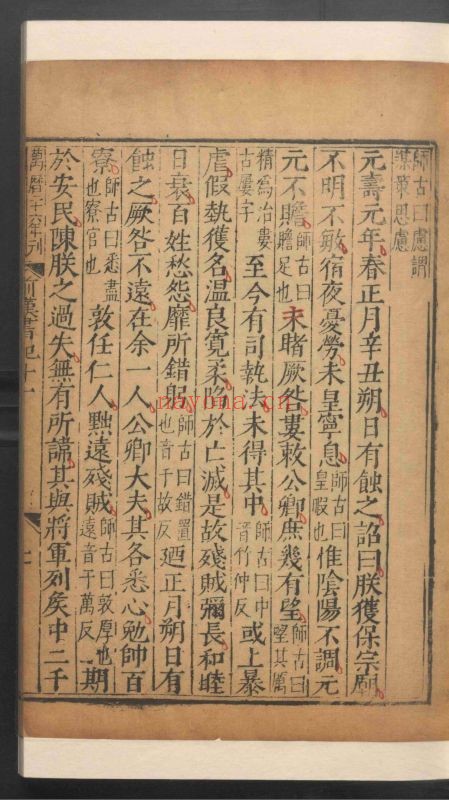 師古曰慮謂
謀策思慮
元壽元年春正月辛丑朔日有蝕之詔曰朕獲保宗廟
不明不敏宿夜憂勞未皇寧息師古曰皇暇也惟陰陽不調元
元不贍師古曰贍足也未睹厥咎婁敕公卿庶幾有望師古曰望其厲
精爲治婁古屢字至今有司執法未得其中師古曰中音竹仲反或上暴
虐假執獲名溫良寬柔陷於亡滅是故殘賊彌長和睦
日衰百姓愁怨靡所錯躬師古曰錯置也音千故反廼正月朔日有
蝕之厥咎不遠在余一人公卿大夫其各悉心勉帥百
寮師古曰悉盡也寮官也敦任仁人黜遠殘賊師古曰敦厚也遠音于萬反期
於安民陳朕之過失無有所諱其與將軍列矦中二千
萬曆二十六年刊
前漢書紀十一
七
nayona.cn